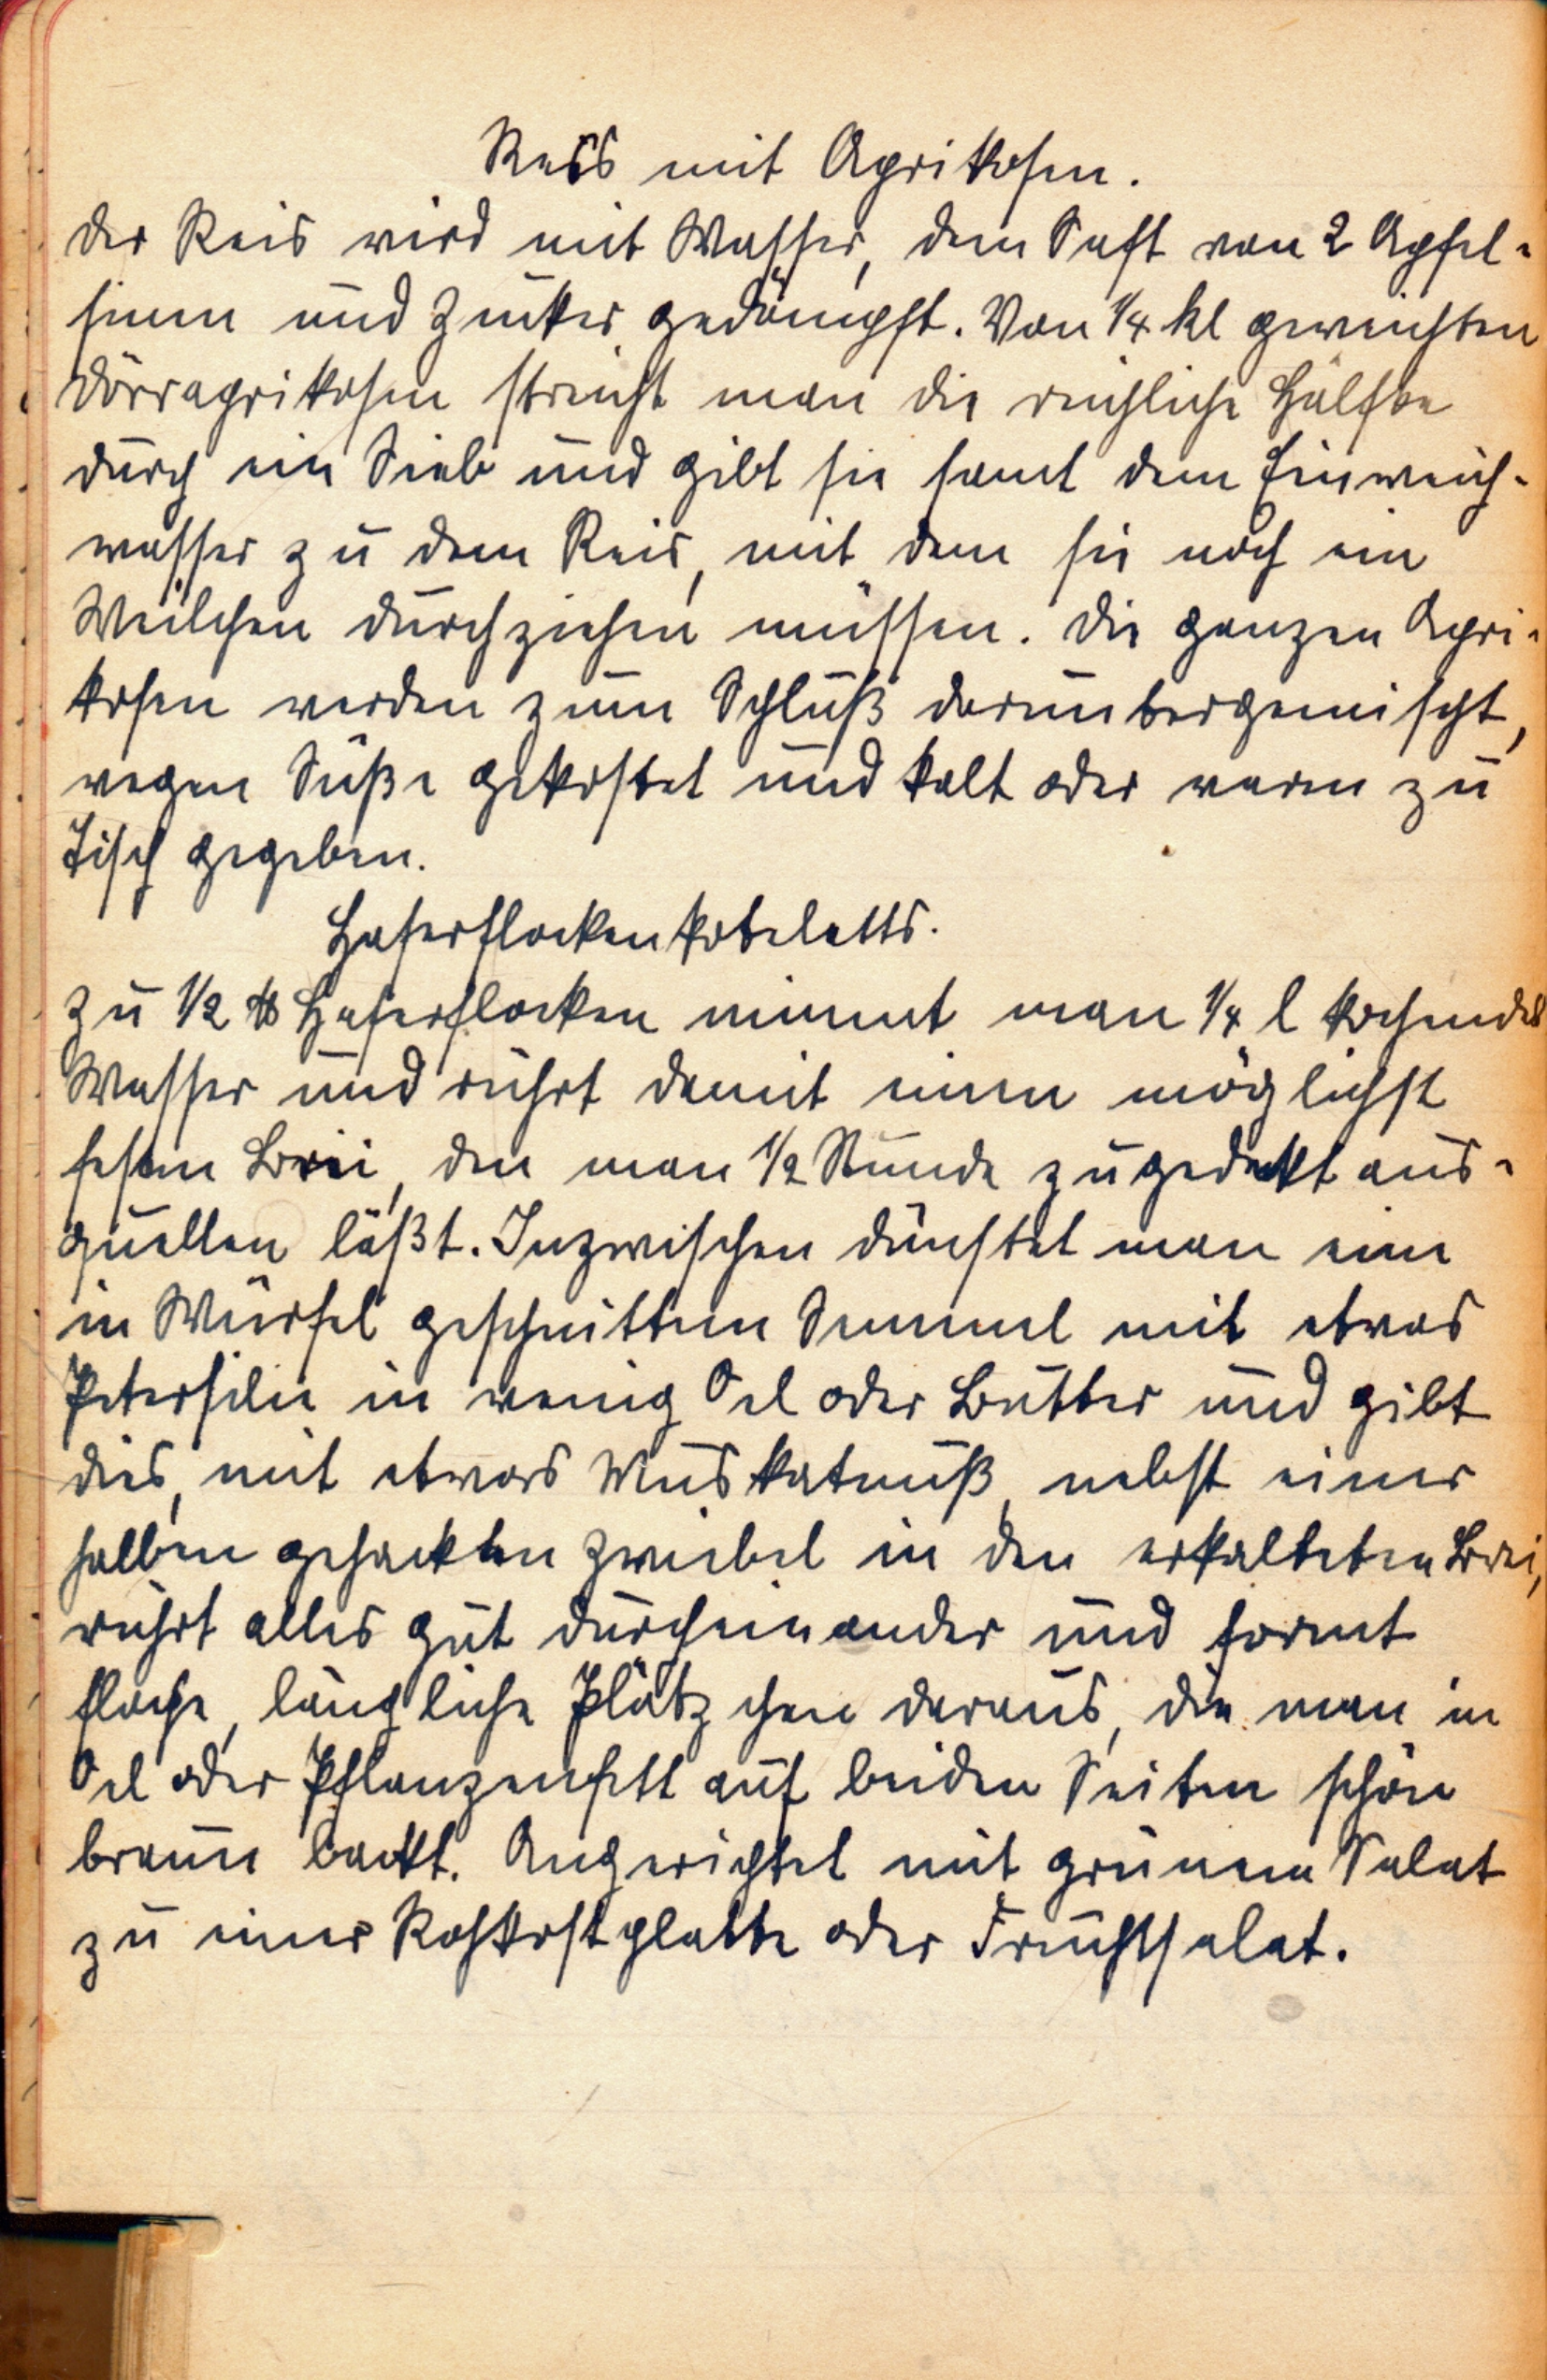 Reis mit Aprikosen.
Der Reis wird mit Wasser, dem Saft von 2 Apfel-
sinen und Zucker gedämpft. Von 1/4 kl geweichten
Dörraprikosen streicht man die reichliche Hälfte
durch ein Sieb und gibt sie samt dem Einweich-
wasser zu dem Reis, mit dem sie noch ein
Weilchen durchziehen müssen. Die ganzen Apri-
kosen werden zum Schluß darunbergemischt,
wegen Süße gekostet und kalt oder warm zu
Tisch gegeben.
Haferflockenkoteletts.
Zu 1/2 ℔ Haferflocken nimmt man 1/4 l kochendes
Wasser und rührt damit einen möglichst
festen Brei, den man 1/2 Stunde zugedeckt aus-
quellen läßt. Inzwischen dünstet man eine
in Würfel geschnittene Semmel mit etwas
Petersilie in wenig Oel oder Butter und gibt
dies, mit etwas Muskatnuß, nebst einer
halben gehackten Zwiebel in den erkalteten Brei,
rührt alles gut durcheinander und formt
flache, längliche Plätzchen daraus, die man in
Oel oder Pflanzenfett auf beiden Seiten schön
braun backt. Angerichtet mit grünem Salat
zu einer Rohkostplatte oder Fruchtsalat.